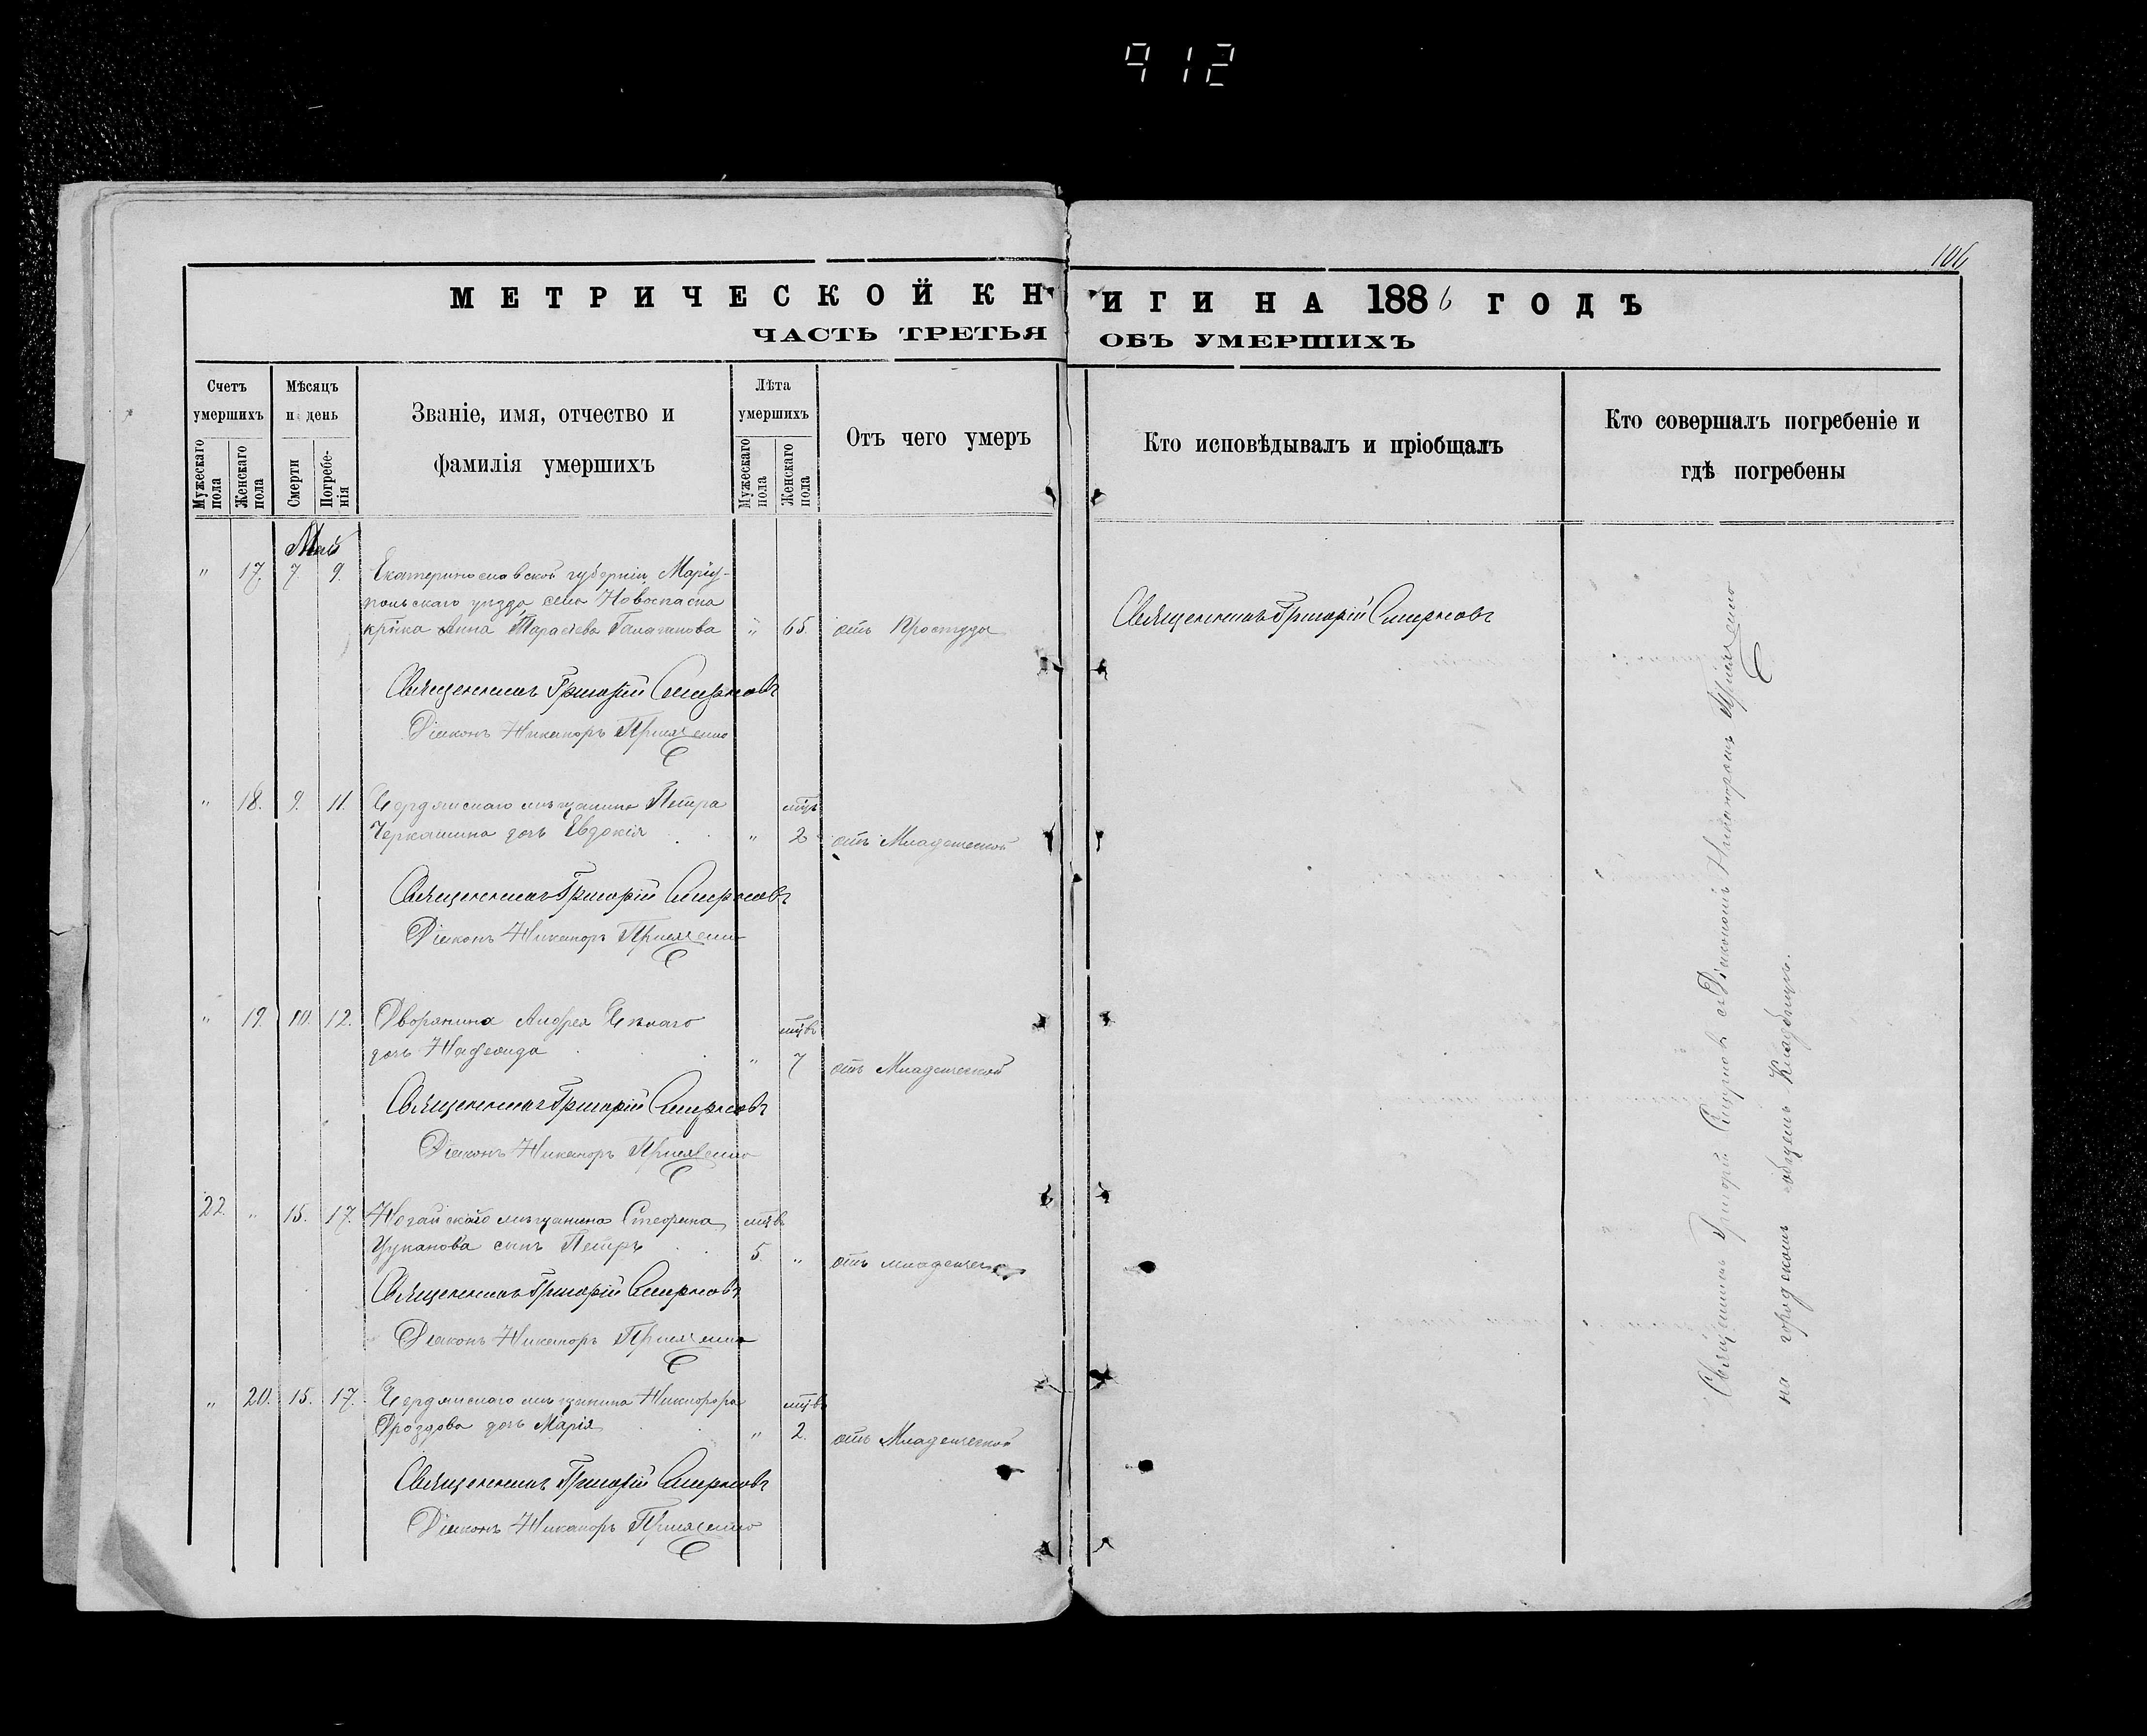 912
106
МЕТРИЧЕСКОЙ КНИГИ НА 1886 ГОДЪ
ЧАСТЬ ТРЕТЬЯ ОБЪ УМЕРШИХЪ
Счетъ умершихъ
Мужескаго пола
Женскаго пола
Мѣсяцъ и день
Смерти
Погребенія
Званіе, имя, отчество и
фамилія умершихъ
Лѣта умершихъ
Мужескаго пола
Женскаго пола
Отъ чего умеръ
Кто исповѣдывалъ и пріобщалъ
Кто совершалъ погребеніе и
гдѣ погребены
Май
" 17. 7. 9. Екатеринославской губерніи, Маріу-
польскаго уѣзда, села Новоспаска
Анна Тарасьева " 65. отъ Простуды Священникъ Григорій Смирновъ
Священникъ Григорій Смирновъ
Діаконъ Никаноръ
" 18. 9. 11. Бердянскаго мѣщанина Петра
Черкашина дочь Евдокія " 2 отъ Младенческой
Священникъ Григорій Смирновъ
Діаконъ Никаноръ
" 19. 10. 12. Дворянина Андрея Бѣлаго
дочь Надежда " 7 отъ Младенческой
Священникъ Григорій Смирновъ
Діаконъ Никаноръ
22. " 15. 17. Ногайскаго мѣщанина Стефана
Цуканова сынъ Петръ 5. " отъ
Священникъ Григорій Смирновъ
Діаконъ Никаноръ
" 20. 15. 17. Бердянскаго мѣщанина Никифора
Дроздова дочь Марія " 2. отъ Младенческой
Священникъ Григорій Смирновъ
Діаконъ Никаноръ
Священникъ Григорій Смирновъ съ Діакономъ Никаноромъ
на городскомъ общемъ Кладбищѣ.